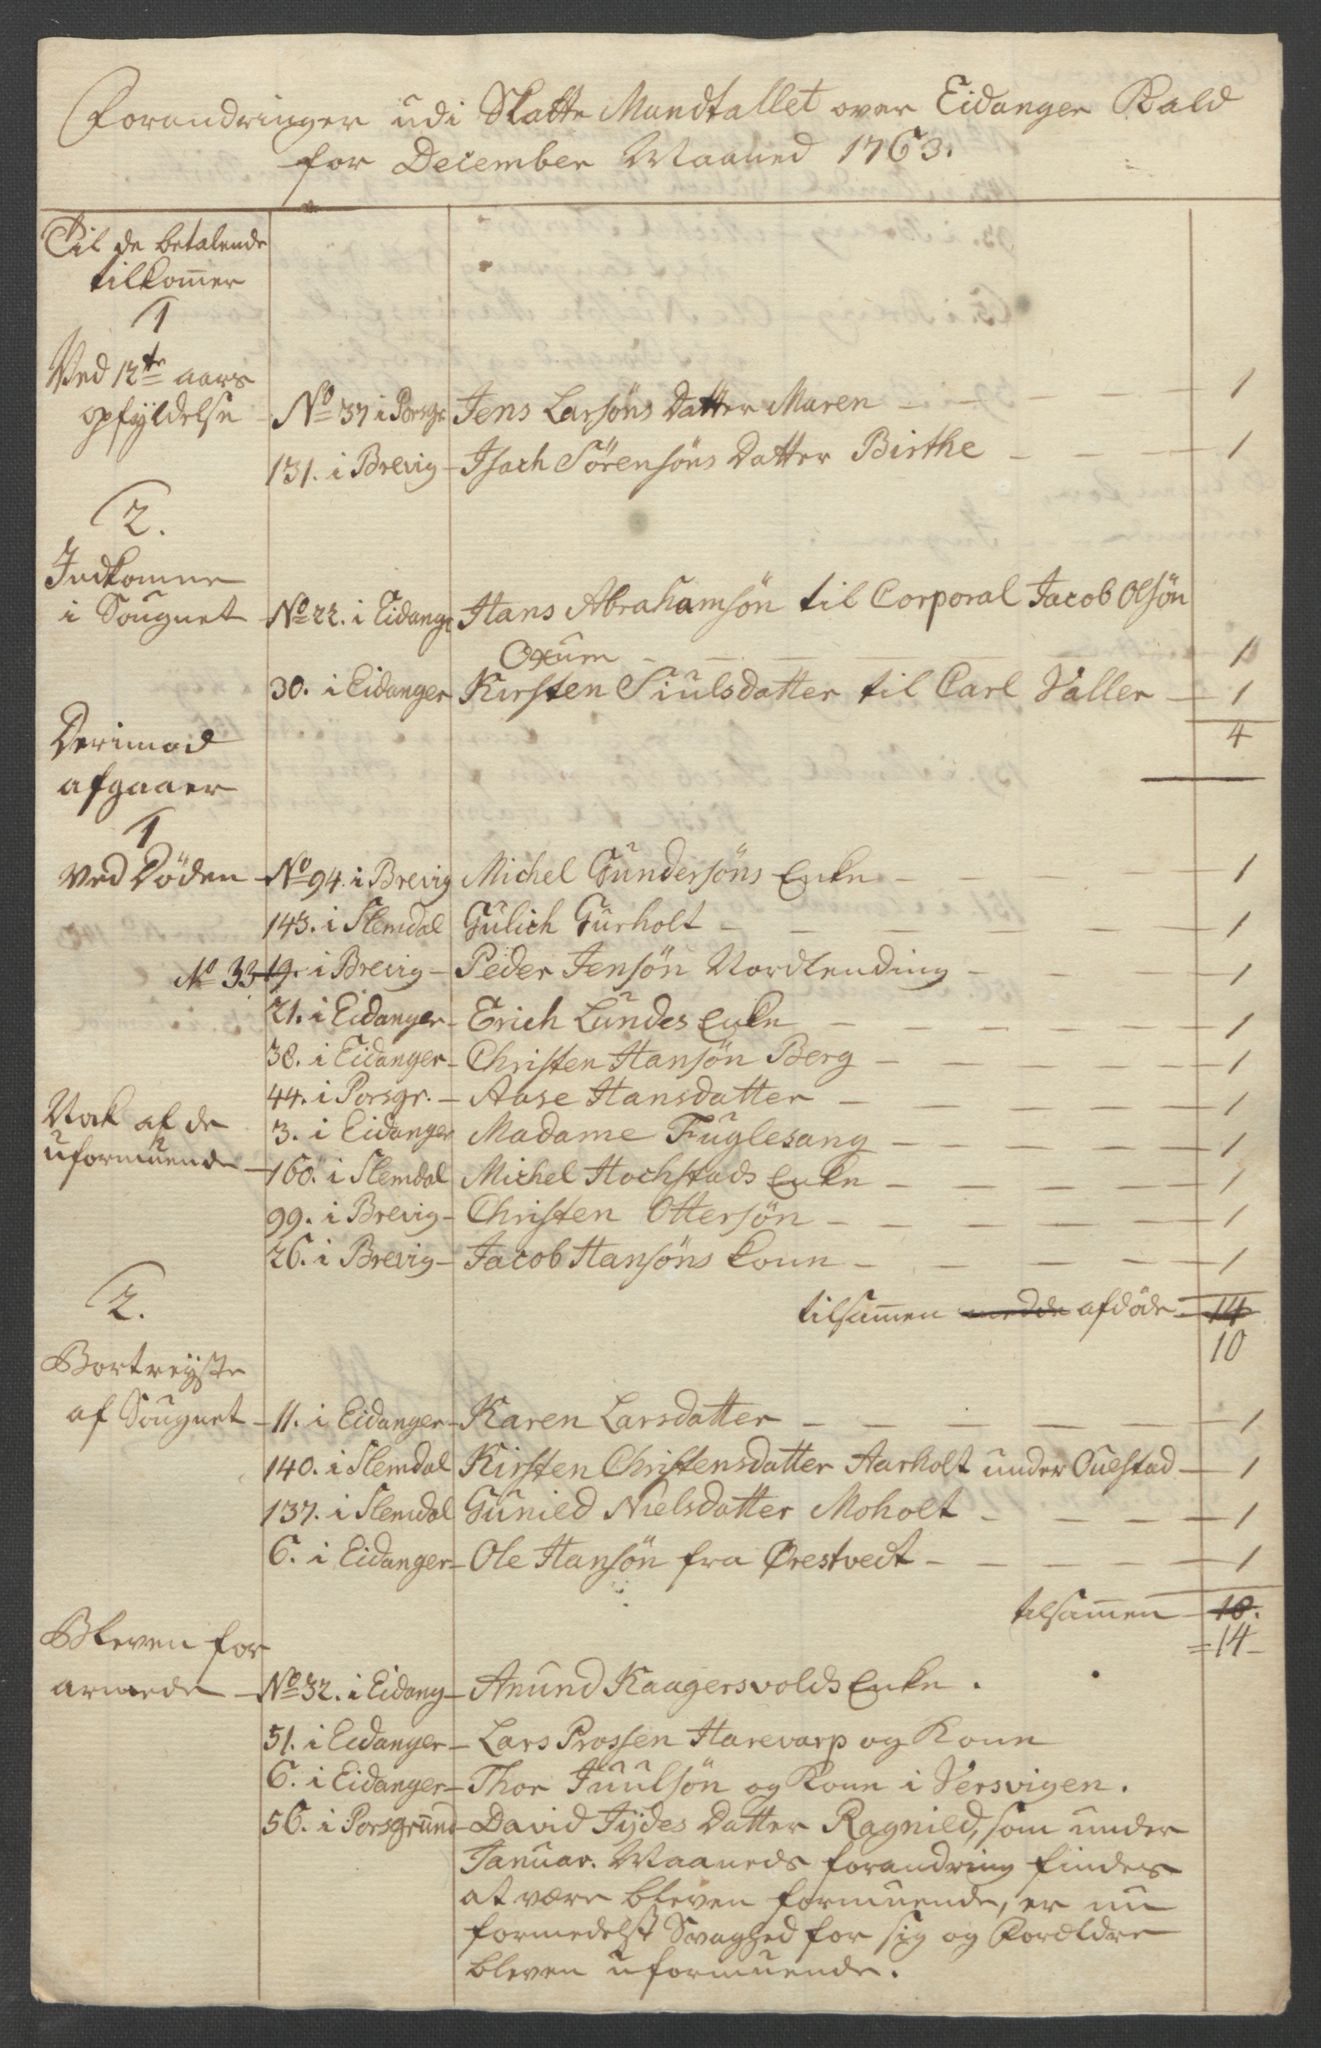 Forandringer udi Skatte Mandtallet over Eidanger Kald
for December Maaned 1763.
Til de betalende
tilkom̅er
1
Ved 12te aars
opfyldelse - No 37 i Porsgr. Jens Larsöns Datter Maren - - - 1
131. i Brevig - Isach Sörensöns Datter Birthe - - - 1
2.
Indkomne
i Sougnet - No 22. i Eidangr Hans Abrahamsön til Corporal Jacob Olsön
Oxum - - - 1
30. i Eidanger Kirsten Siulsdatter til Carl Valler - 1
4
Derimod
afgaaer
1
ved Döden - No 94. i Brevig Michel Gundersöns Enke - - - 1
143. i Slemdal Gulich Gurholt - - - 1
No 33 19. i Brevig - Peder Jensön Nordlending - - - 1
21. i Eidanger - Erich Lundes Enke - - - 1
38. i Eidanger - Christen Hansön Berg - - - 1
44. i Porsgr. - Aase Hansdatter - - - 1
Nok af de
uformuende - 3. i Eidanger Madame Fuglesang - - - 1
160. i Slemdal Michel Hochstads Enke - - - 1
99. i Brevig - Christen Ottersön - - - 1
26. i Brevig - Jacob Hansöns Kone - - - 1
tilsam̅en afdöde - 14
10
2.
Bortreyste
af Sougnet - 11. i Eidanger - Karen Larsdatter - - - 1
140. i Slemdal Kirsten Christensdatter Aarholt under Ouestad - 1
137. i Slemdal Gunild Nielsdatter Moholt - - - 1
6. i Eidanger - Ole Hansön fra Ørestvedt - - - 1
tilsam̅en - 10.
= 14 -
Bleven for
armede - No 32. i Eidang - Anund Kaagersvolds Enke.
51. i Eidanger - Lars Prossen Harevarp og Kone
6. i Eidanger - Thor Juulsön og Kone i Versvigen.
56. i Porsgrund - David Jydes Datter Ragnild, som under
Januar. Maaneds forandring findes
at være bleven formuende, er nu
formedelst Svaghed for sig og Forældre
bleven uformuende.